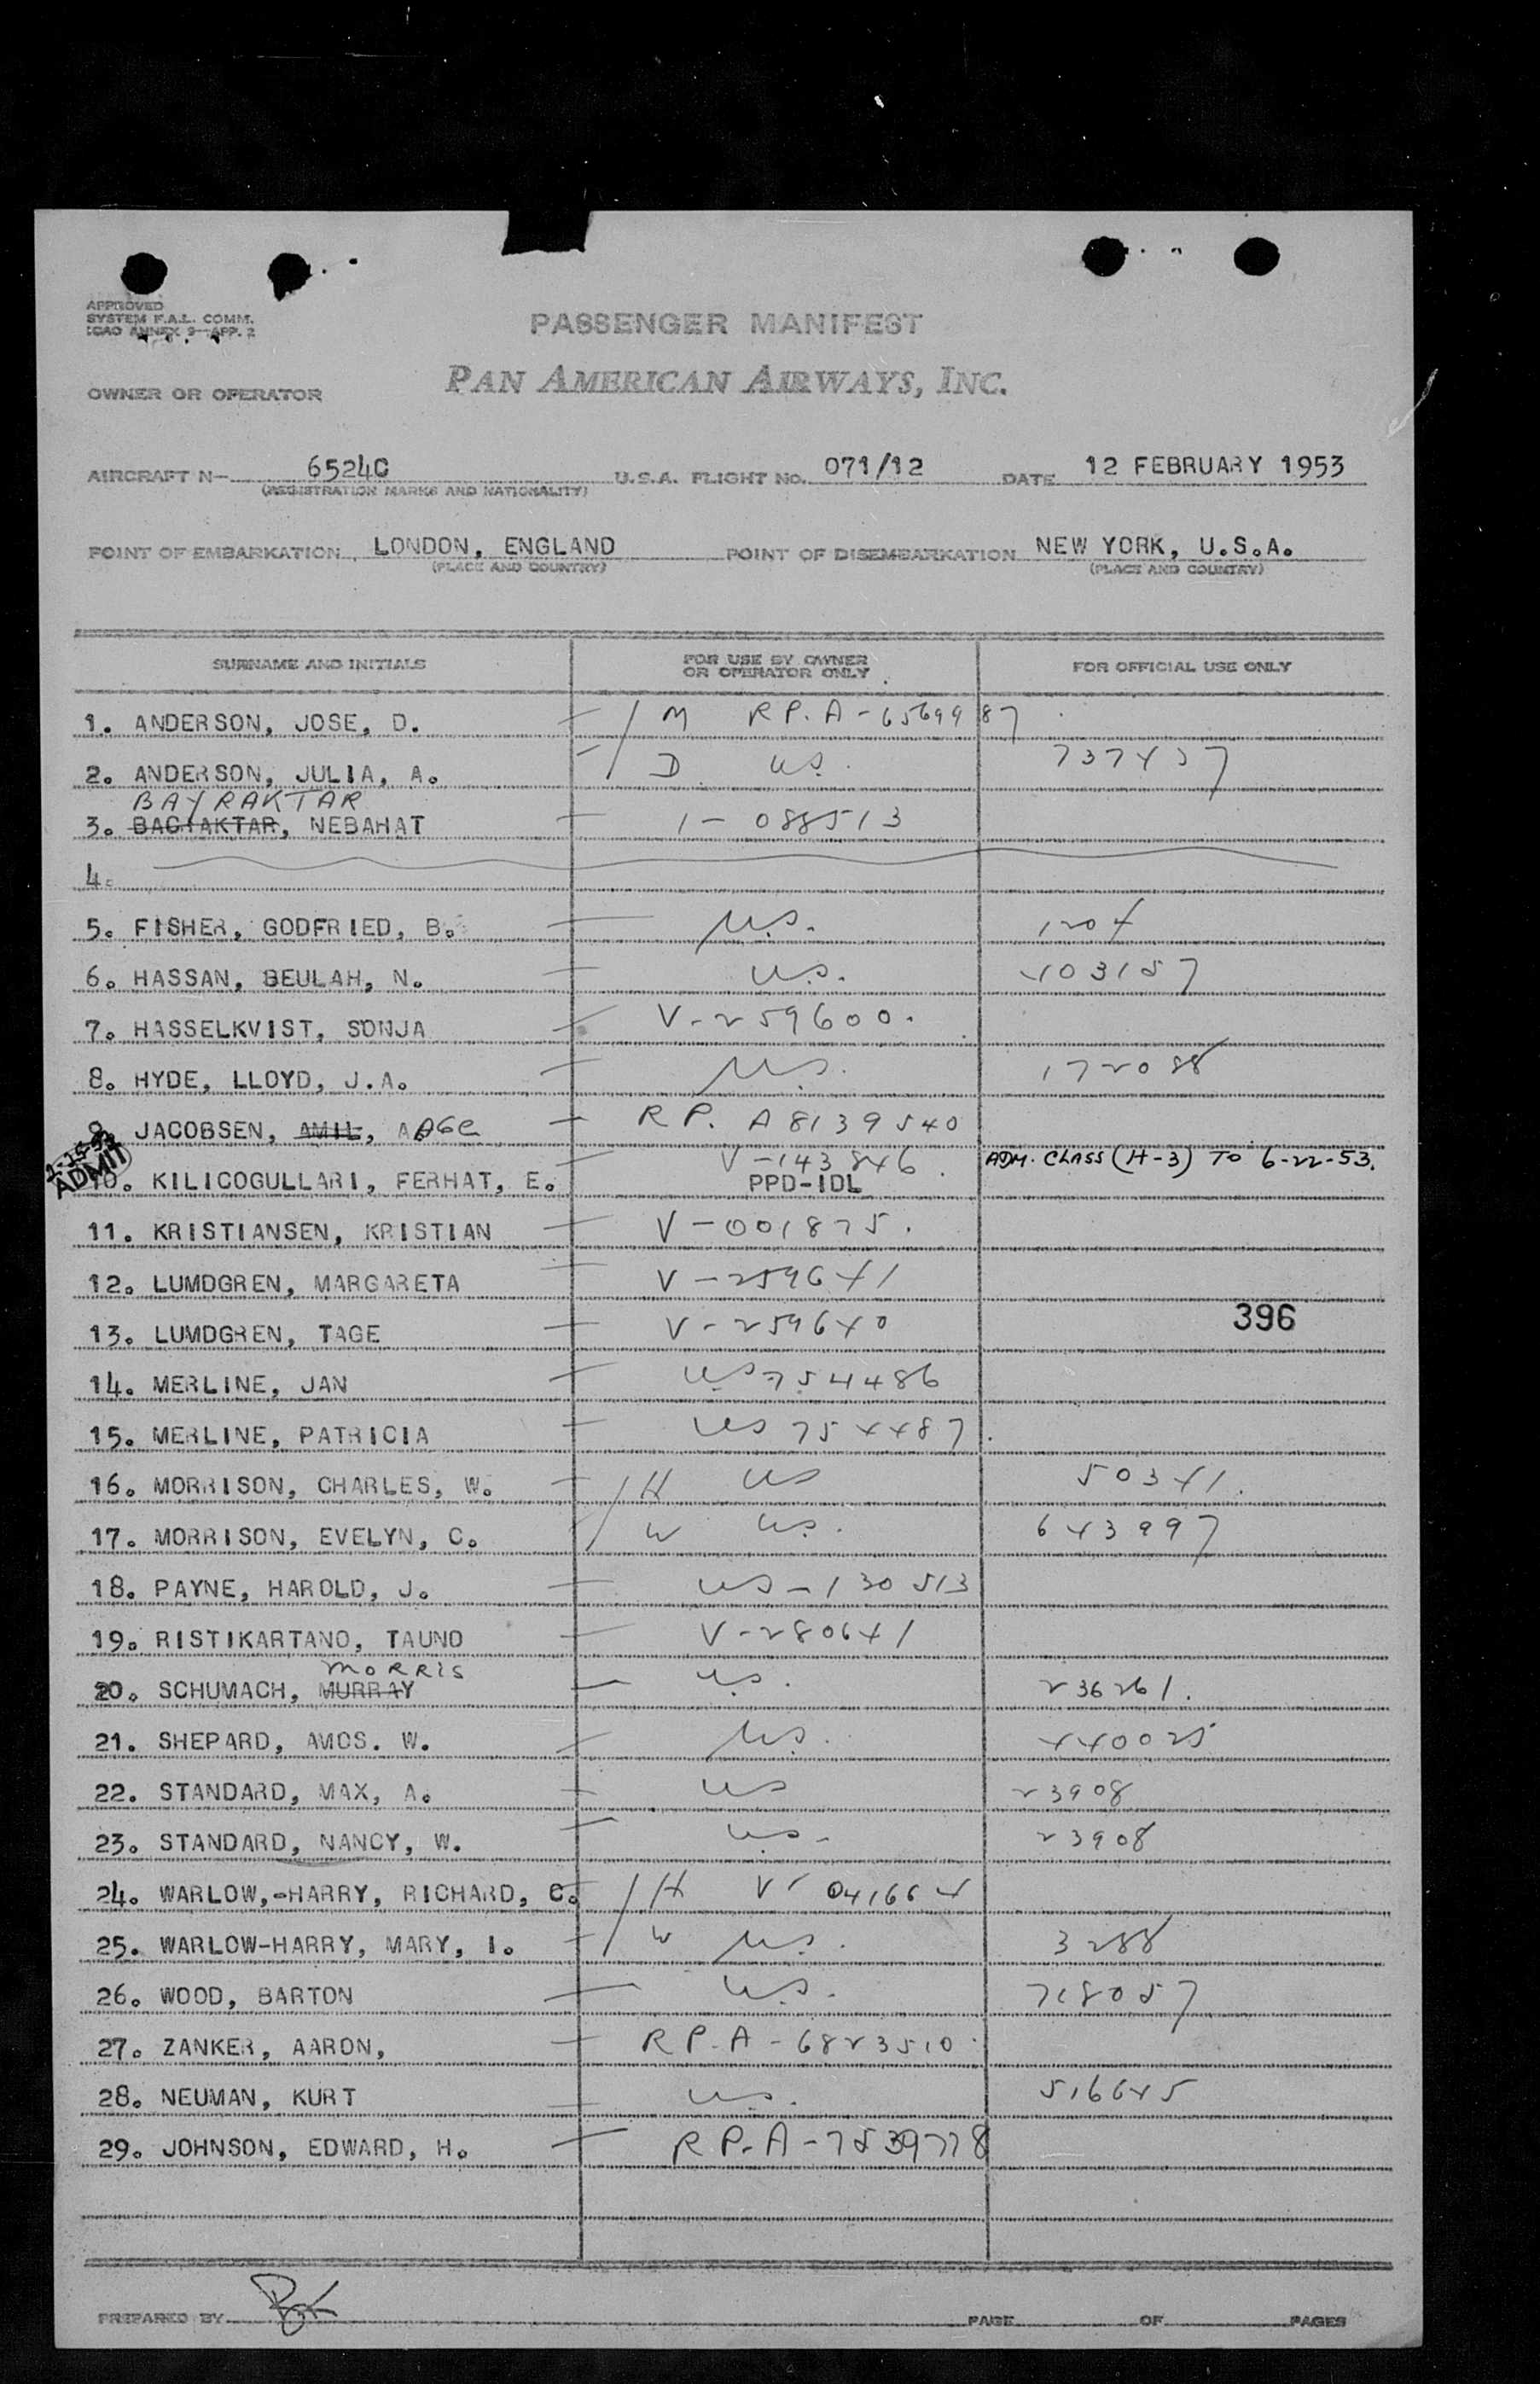 APPROVED
SYSTEM F.A.L. COMM.
ICAO ANNEX 9-APP. 2
PASSENGER MANIFEST
OWNER OR OPERATOR PAN AMERICAN AIRWAYS, INC.
AIRCRAFT N- 6524C U.S.A. FLIGHT NO. 071/12 DATE 12 FEBRUARY 1953
(REGISTRATION MARKS AND NATIONALITY)
POINT OF EMBARKATION LONDON, ENGLAND POINT OF DISEMBARKATION NEW YORK, U.S.A.
(PLACE AND COUNTRY) (PLACE AND COUNTRY)
SURNAME AND INITIALS FOR USE BY OWNER OR OPERATOR ONLY FOR OFFICIAL USE ONLY
1. ANDERSON, JOSE, D. M R P. A-6569987
2. ANDERSON, JULIA, A. D U.S. 737437
BAYRAKTAR
3. BAGTAKTAR, NEBAHAT 1-088513
4.
5. FISHER, GODFRIED, B. U.S. 1204
6. HASSAN, BEULAH, N. U.S. 403157
7. HASSELKVIST, SONJA V-259600.
8. HYDE, LLOYD, J.A. U.S. 172088
9. JACOBSEN, AMIL, AAGE R P. A 8139540
ADMIT
10. KILICOGULLARI, FERHAT, E. V-143846. PPD-IDL ADM. CLASS (H-3) TO 6-22-53.
11. KRISTIANSEN, KRISTIAN V-001875.
12. LUMDGREN, MARGARETA V-259641
396
13. LUMDGREN, TAGE V-259640
14. MERLINE, JAN US 754486
15. MERLINE, PATRICIA US 754487.
16. MORRISON, CHARLES, W. H US 50341.
17. MORRISON, EVELYN, C. W U.S. 643997
18. PAYNE, HAROLD, J. US-130513
19. RISTIKARTANO, TAUNO V-280641
MORRIS
20. SCHUMACH, MURRAY U.S. 236261.
21. SHEPARD, AMOS. W. U.S. 440025
22. STANDARD, MAX, A. US 23908
23. STANDARD, NANCY, W. U.S. 23908
24. WARLOW,-HARRY, RICHARD, C. H V-041664
25. WARLOW-HARRY, MARY, I. W U.S. 3288
26. WOOD, BARTON U.S. 718057
27. ZANKER, AARON, R P. A-6823510
28. NEUMAN, KURT U.S. 516645
29. JOHNSON, EDWARD, H. R P. A-7539778
PREPARED BY PAGE OF PAGES